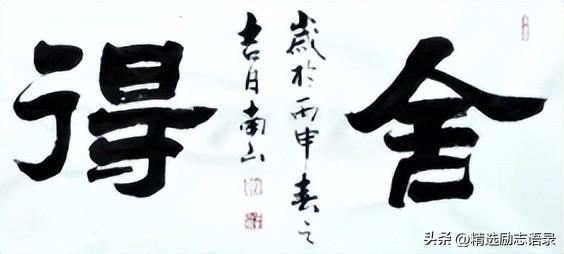 舍得
歲於丙申春之
吉日南山
头条 @精选励志语录